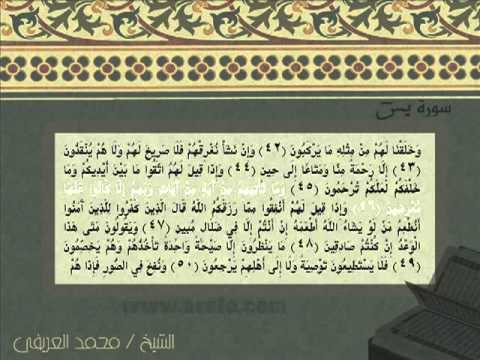 سورة يس
وَخَلَقْنَا لَهُمْ مِنْ مِثْلِهِ مَا يَرْكَبُونَ (٤٢) وَإِنْ نَشَأْ نُغْرِقْهُمْ فَلَا صَرِيخَ لَهُمْ وَلَا هُمْ يُنْقَذُونَ
(٤٣) إِلَّا رَحْمَةً مِنَّا وَمَتَاعًا إِلَى حِينٍ (٤٤) وَإِذَا قِيلَ لَهُمُ اتَّقُوا مَا بَيْنَ أَيْدِيكُمْ وَمَا
خَلْفَكُمْ لَعَلَّكُمْ تُرْحَمُونَ (٤٥) وَمَا تَأْتِيهِمْ مِنْ آيَةٍ مِنْ آيَاتِ رَبِّهِمْ إِلَّا كَانُوا عَنْهَا
مُعْرِضِينَ (٤٦) وَإِذَا قِيلَ لَهُمْ أَنْفِقُوا مِمَّا رَزَقَكُمُ اللَّهُ قَالَ الَّذِينَ كَفَرُوا لِلَّذِينَ آمَنُوا
أَنُطْعِمُ مَنْ لَوْ يَشَاءُ اللَّهُ أَطْعَمَهُ إِنْ أَنْتُمْ إِلَّا فِي ضَلَالٍ مُبِينٍ (٤٧) وَيَقُولُونَ مَتَى هَذَا
الْوَعْدُ إِنْ كُنْتُمْ صَادِقِينَ (٤٨) مَا يَنْظُرُونَ إِلَّا صَيْحَةً وَاحِدَةً تَأْخُذُهُمْ وَهُمْ يَخِصِّمُونَ
(٤٩) فَلَا يَسْتَطِيعُونَ تَوْصِيَةً وَلَا إِلَى أَهْلِهِمْ يَرْجِعُونَ (٥٠) وَنُفِخَ فِي الصُّورِ فَإِذَا هُمْ
الشيخ / محمد العريفي